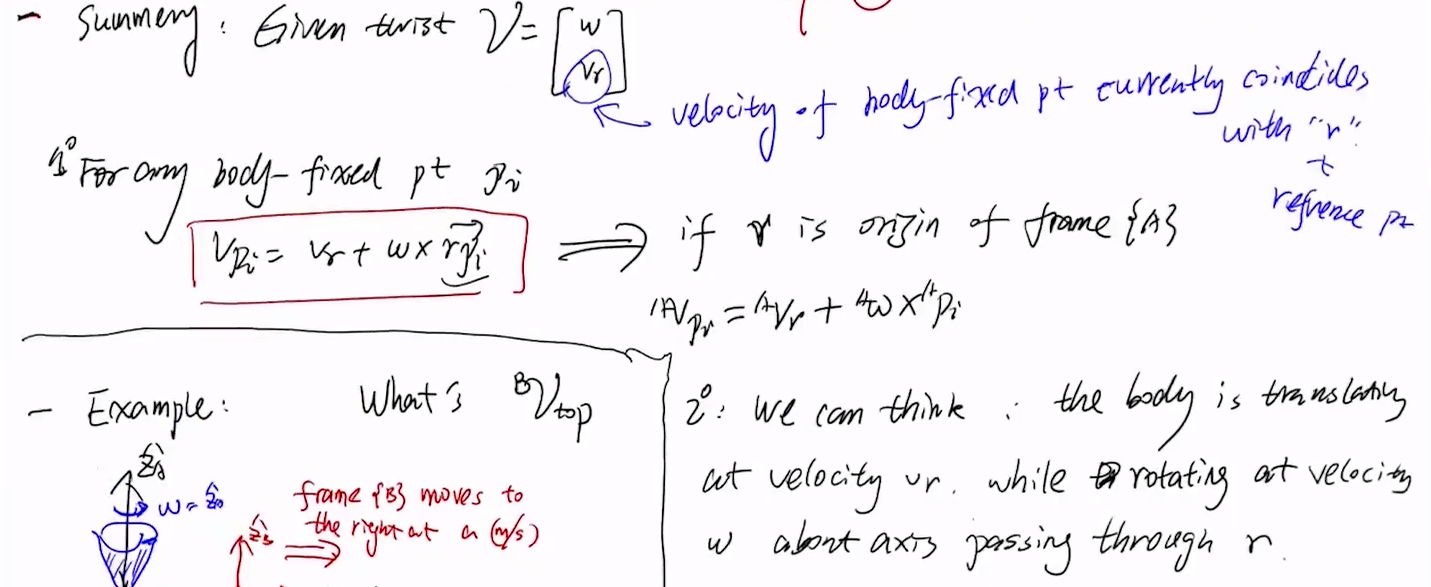 - Summery : Given twist V = [ω vr]
velocity of body-fixed pt currently coindides
with "r"
refrence pt
1° For any body-fixed pt pi
vpi = vr + ω × rpi ⟹ if r is origin of frame {A}
ᴬvpr = ᴬvr + ᴬω × ᴬpi
- Example: What's ᴮVtop
ẑA
ω = ẑA
frame {B} moves to
the right at a (m/s)
ẑB
2°: we can think : the body is translating
at velocity vr. while rotating at velocity
ω about axis passing through r.